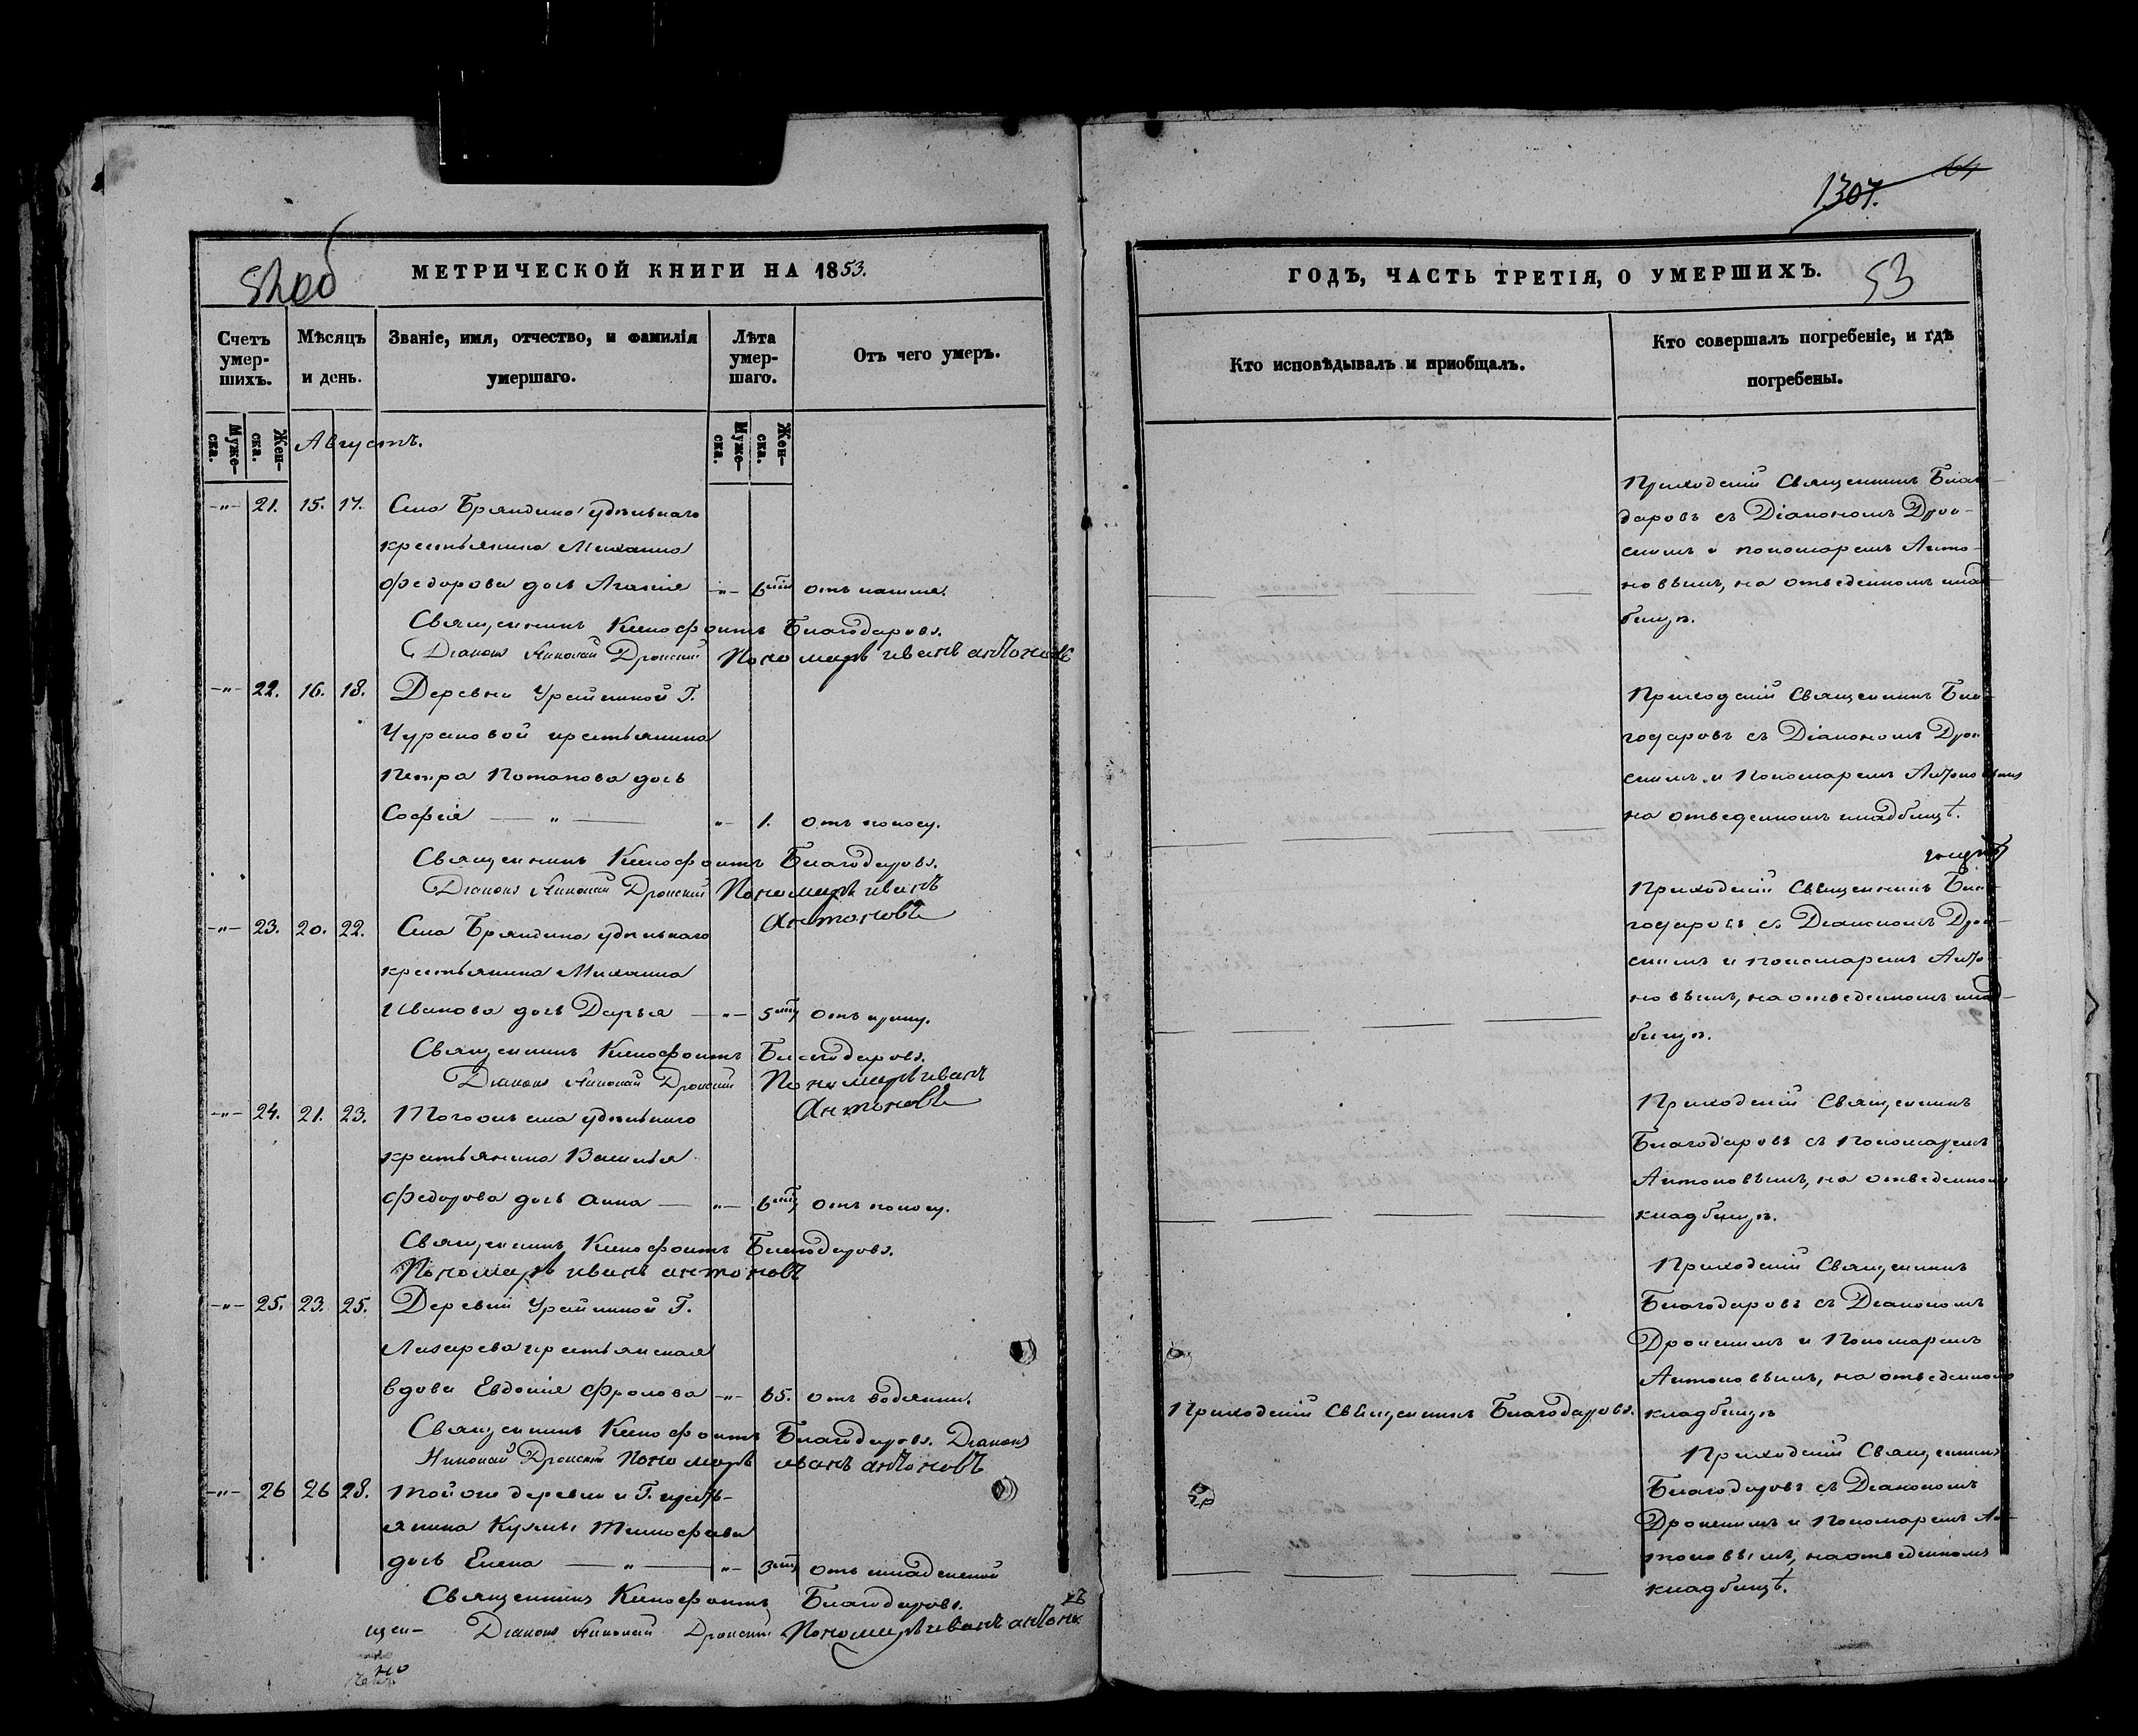 1307.
МЕТРИЧЕСКОЙ КНИГИ НА 1853.
ГОДЪ, ЧАСТЬ ТРЕТІЯ, О УМЕРШИХЪ.
53
Счетъ умер-шихъ.
Мѣсяцъ и день.
Званіе, имя, отчество, и фамилія умершаго.
Лѣта умер-шаго.
Отъ чего умеръ.
Кто исповѣдывалъ и пріобщалъ.
Кто совершалъ погребеніе, и гдѣ погребены.
Муже-ска.
Жен-ска.
Августъ.
Муже-ска.
Жен-ска.
-"- 21. 15. 17. Села Бряндина удѣльнаго
крестьянина Михаила
Федорова дочь Агафія -"- 6 отъ кашля.
Священникъ Ксенофонтъ Благодаровъ.
Діаконъ Николай Дронскій Пономарь иванъ антоновъ
Приходскій Священникъ Благо-
даровъ съ Діакономъ Дрон-
скимъ и пономаремъ Анто-
новымъ, на отведенномъ клад-
бищѣ.
-"- 22. 16. 18. Деревни Урайкиной Г.
Чураковой крестьянина
Петра Потапова дочь
Софія — " — " 1. отъ поносу.
Священникъ Ксенофонтъ Благодаровъ.
Діаконъ Николай Дронскій Пономарь иванъ
Антоновъ
Приходскій Священникъ Бла-
годаровъ съ Діакономъ Дрон-
скимъ и Пономаремъ Антоновымъ
на отведенномъ кладбищѣ.
-"- 23. 20. 22. Села Бряндина удѣльнаго
крестьянина Михаила
Иванова дочь Дарья -"- 5 отъ
Священникъ Ксенофонтъ Благодаровъ.
Діаконъ Николай Дронскій Пономарь иванъ
Антоновъ
Приходскій Священникъ Бла-
годаровъ съ Діакономъ Дрон-
скимъ и пономаремъ Анто-
новымъ, на отведенномъ клад-
бищѣ.
-"- 24. 21. 23. Тогожъ села удѣльнаго
крестьянина Василья
Федорова дочь Анна — "- 6 отъ поносу.
Священникъ Ксенофонтъ Благодаровъ.
Пономарь иванъ антоновъ
Приходскій Священникъ
Благодаровъ съ пономаремъ
Антоновымъ, на отведенномъ
кладбищѣ.
-"- 25. 23. 25. Деревни Урайкиной Г.
Лазарева крестьянская
вдова Евдокія Фролова -"- 65. отъ водянки.
Священникъ Ксенофонтъ Благодаровъ. Діаконъ
Николай Дронскій Пономарь иванъ антоновъ
Приходскій Священникъ Благодаровъ.
Приходскій Священникъ
Благодаровъ съ Діакономъ
Дронскимъ и Пономаремъ
Антоновымъ, на отведенномъ
кладбищѣ
-"- 26 26 28. Тойже деревни и Г. кресть-
янина Кузьмы Тимофеева
дочь Елена — " — "- 3 отъ младенской
Священникъ Ксенофонтъ Благодаровъ.
Діаконъ Николай Дронскій Пономарь иванъ антоновъ
Приходскій Священникъ
Благодаровъ съ Діакономъ
Дронскимъ и Пономаремъ Ан-
тоновымъ, на отведенномъ
кладбищѣ.
щен-
но